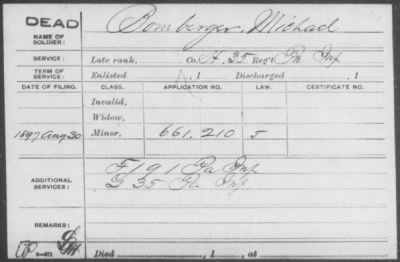 DEAD
NAME OF SOLDIER: Bomberger, Michael
SERVICE: Late rank, Co. H, 35 Reg't Pa Inf
TERM OF SERVICE: Enlisted , 1 Discharged , 1
DATE OF FILING. CLASS. APPLICATION NO. LAW. CERTIFICATE NO.
Invalid,
Widow,
1897 Aug 30 Minor, 661.210 J
ADDITIONAL SERVICES: F 191 Pa Inf
G 35 Pa. Inf
REMARKS:
Died , 1 , at